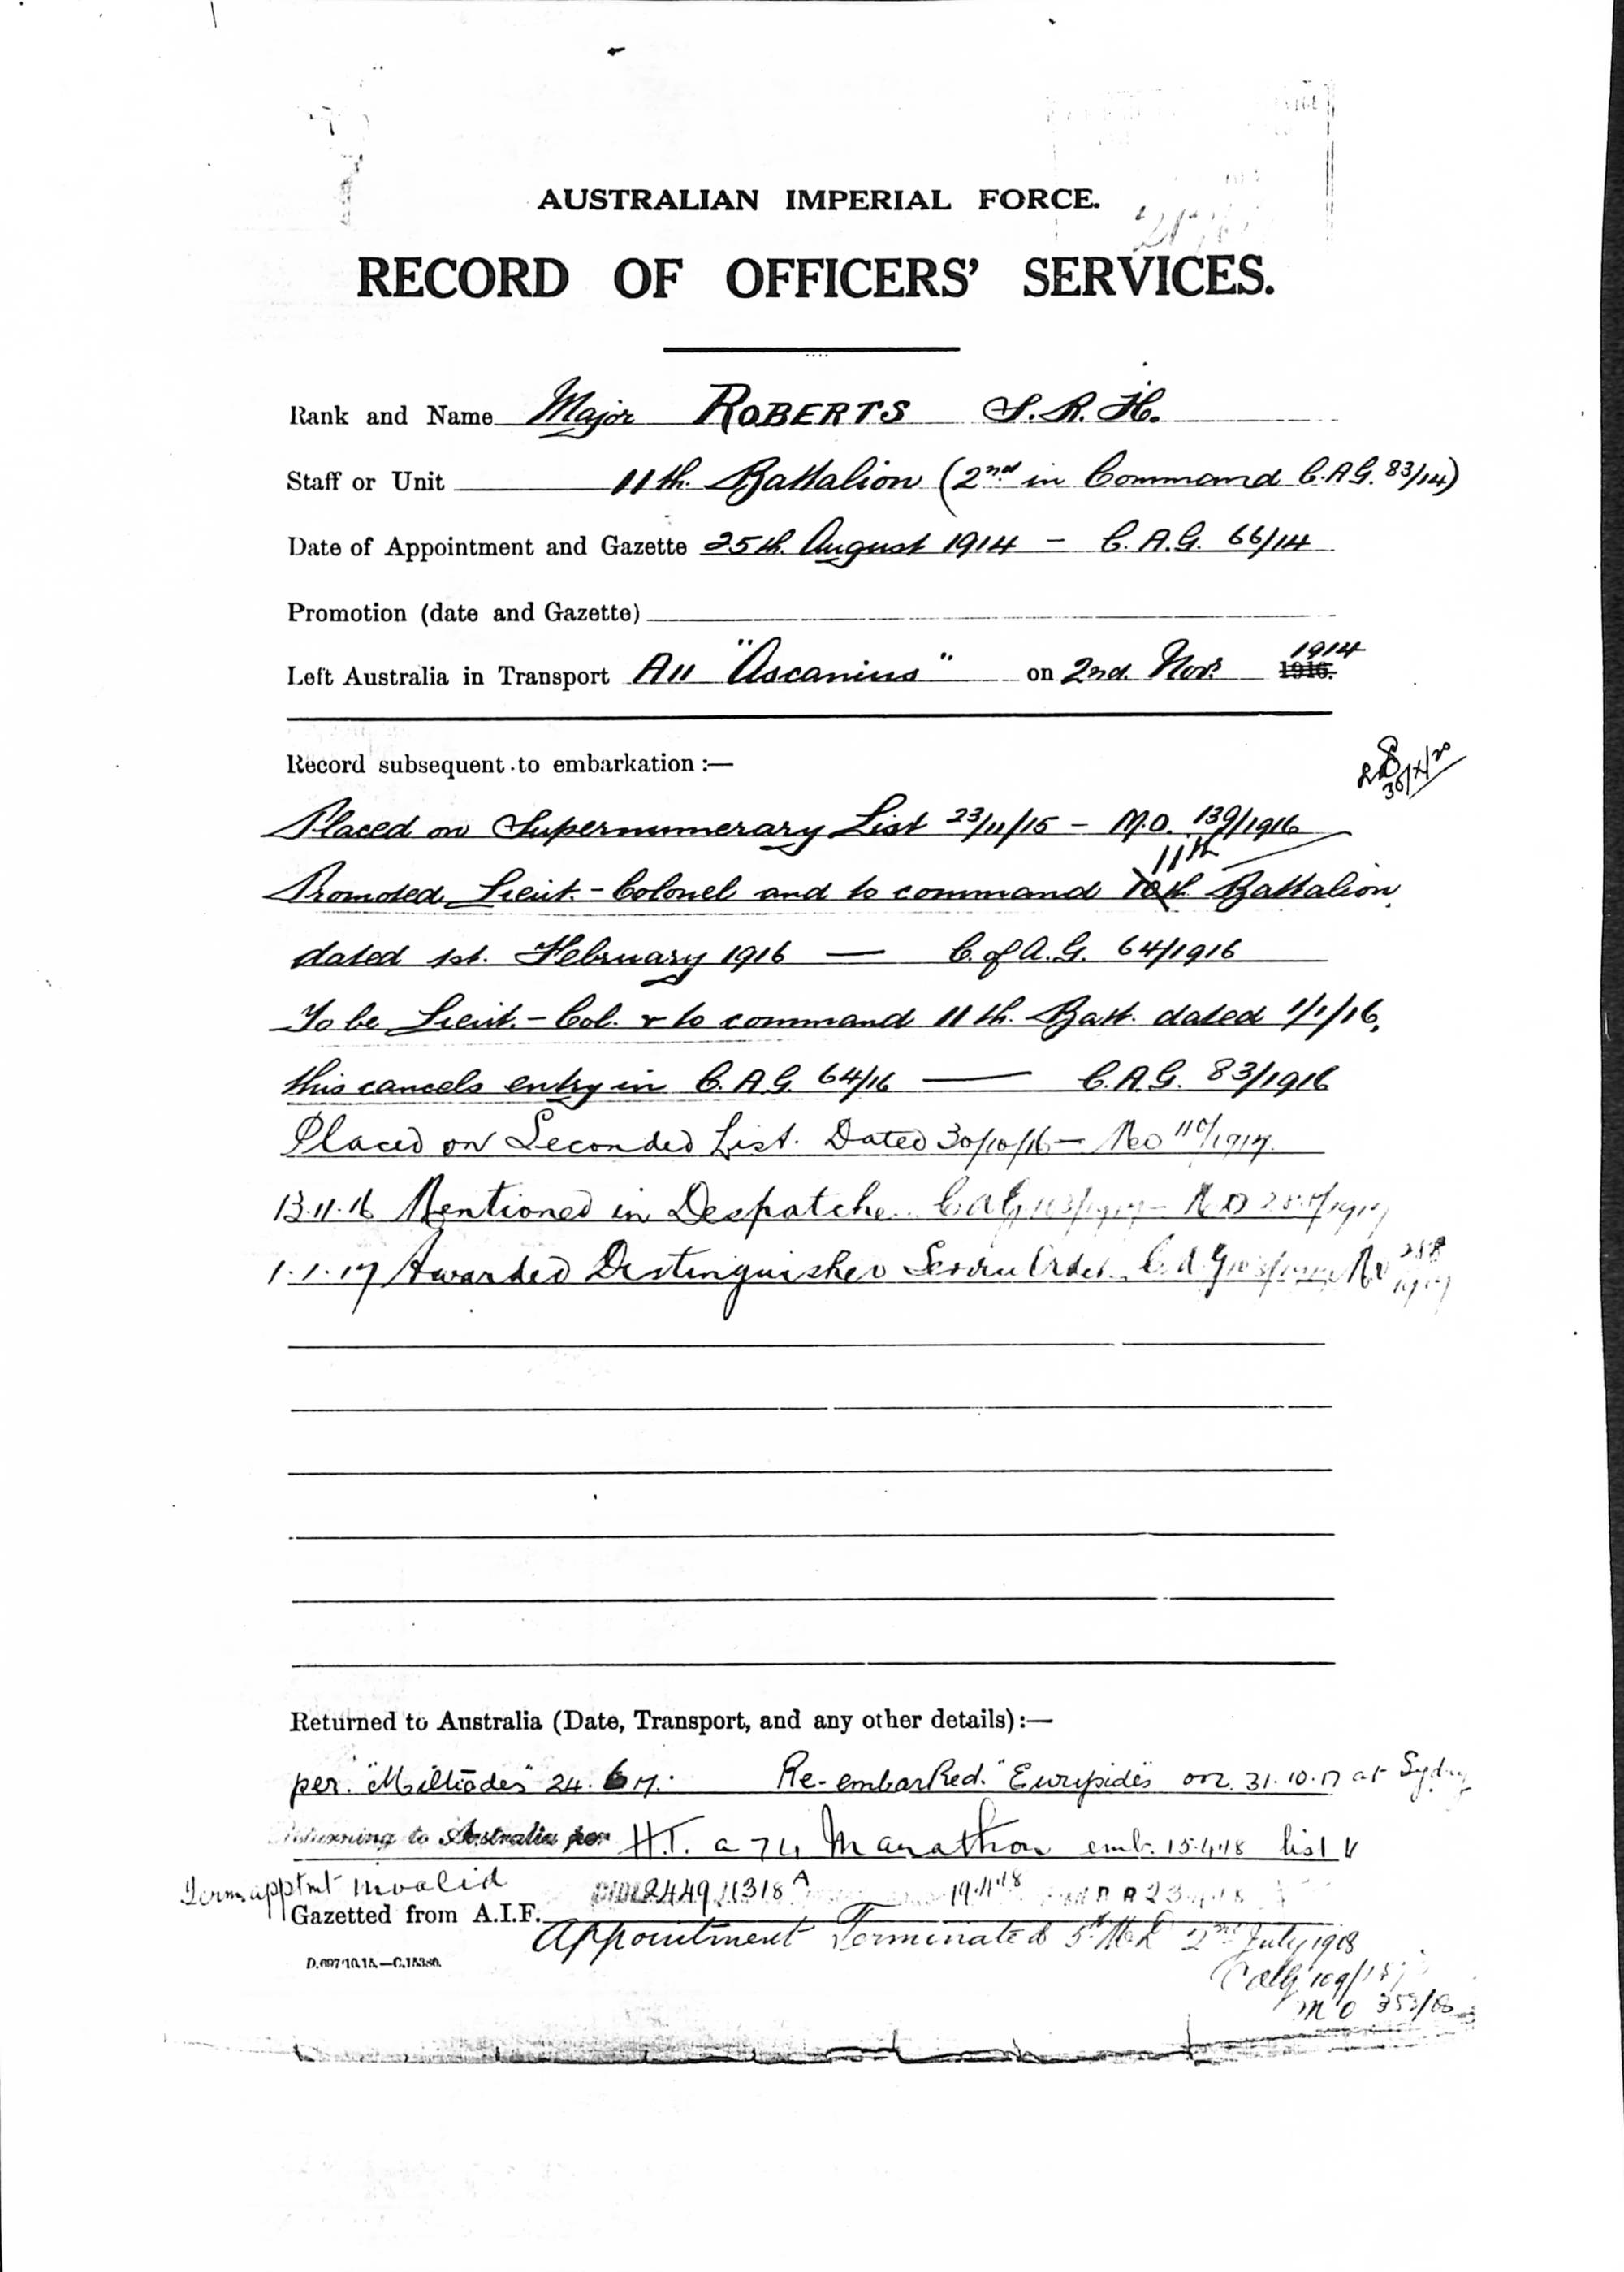 AUSTRALIAN IMPERIAL FORCE.
RECORD OF OFFICERS' SERVICES.
Rank and Name Major ROBERTS S. R. H.
Staff or Unit 11th. Battalion (2nd in Command C.A.G. 83/14)
Date of Appointment and Gazette 25th. August 1914 — C.A.G. 66/14
Promotion (date and Gazette)
1914
Left Australia in Transport A11 "Ascanius" on 2nd. Novr. 1916.
Record subsequent to embarkation :—
Placed on Supernumerary List 23/11/15 — M.O. 139/1916
11th
Promoted Lieut.-Colonel and to command 10th Battalion,
dated 1st. February 1916 — C. of A.G. 64/1916
To be Lieut.-Col. & to command 11th. Batt. dated 1/1/16,
this cancels entry in C.A.G. 64/16 — C.A.G. 83/1916
Placed on Seconded List. Dated 30/10/16 — MO 110/1917.
13.11.16 Mentioned in Despatche
1.1.17 Awarded Distinguished Service Order. C A G
Returned to Australia (Date, Transport, and any other details):—
per. "Miltiades" 24.6.17. Re-embarked. "Euripides" on 31.10.17 at Sydny
Returning to Australia per H.T. a 74 Marathon emb. 15.4.18 list V
Term. apptmt invalid 2449 11318 A 19.4.18
Gazetted from A.I.F.
Appointment Terminated 5th M.D. 2nd July 1918
C of A G 109/18
M O 353/18
D.697/10.15.—C.15380.